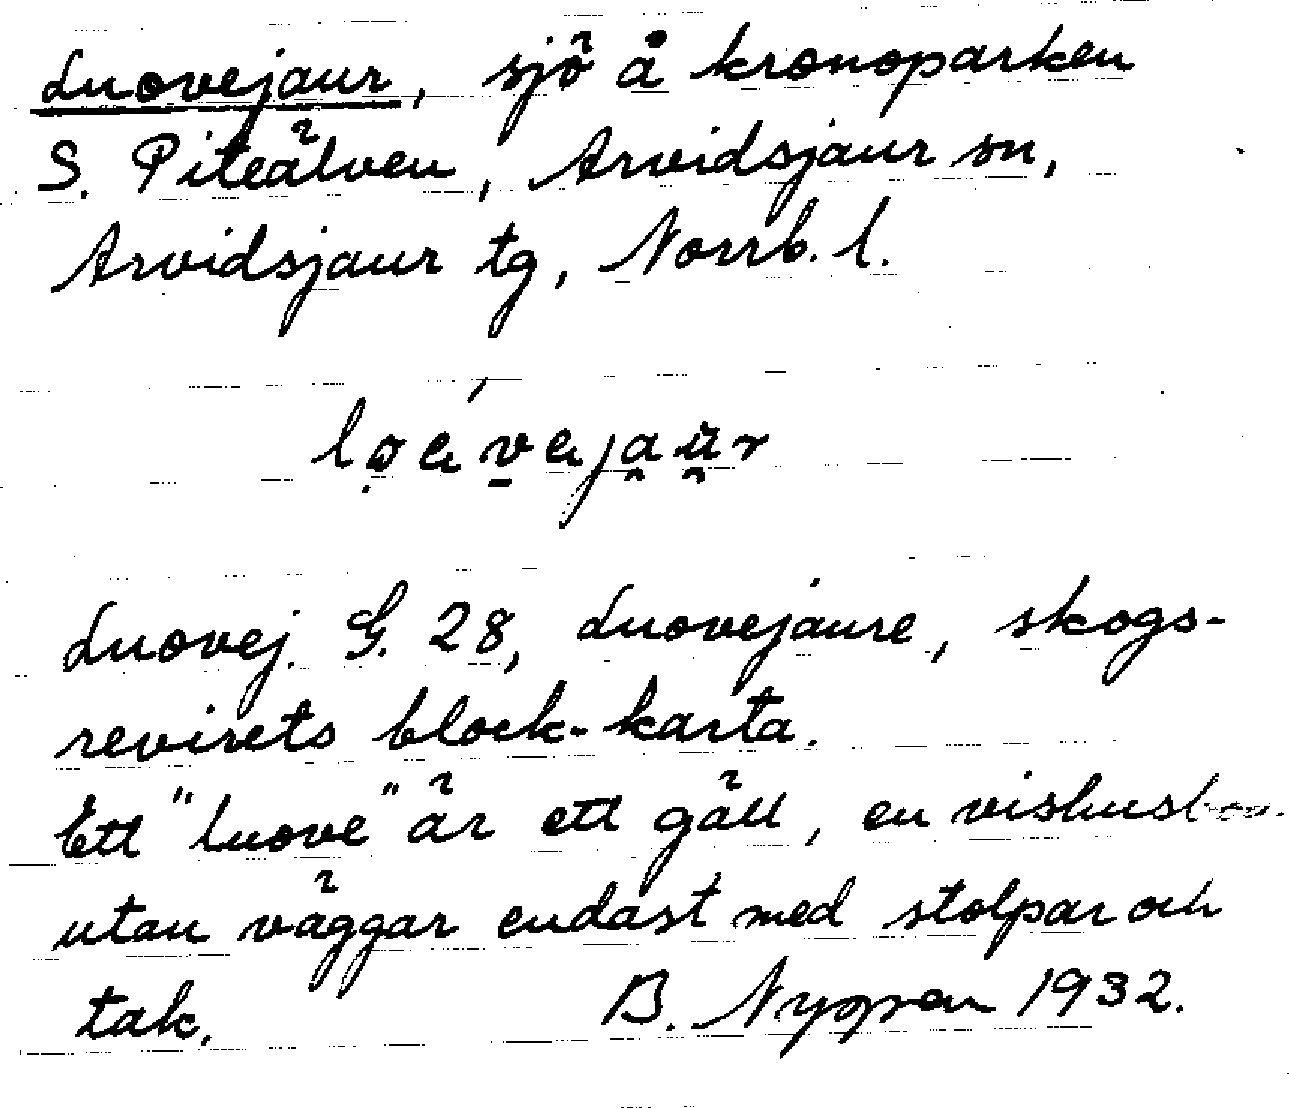 Luovejaur, sjö å kronoparken
S. Piteälven, Arvidsjaur sn,
Arvidsjaur tg, Norrb. l.
Luovej. G. 28, Luovejaure, skogs-
revirets block-karta.
Ett "luove" är ett gäll, en
utan väggar endast med stolpar och
tak. B. Nyman 1932.